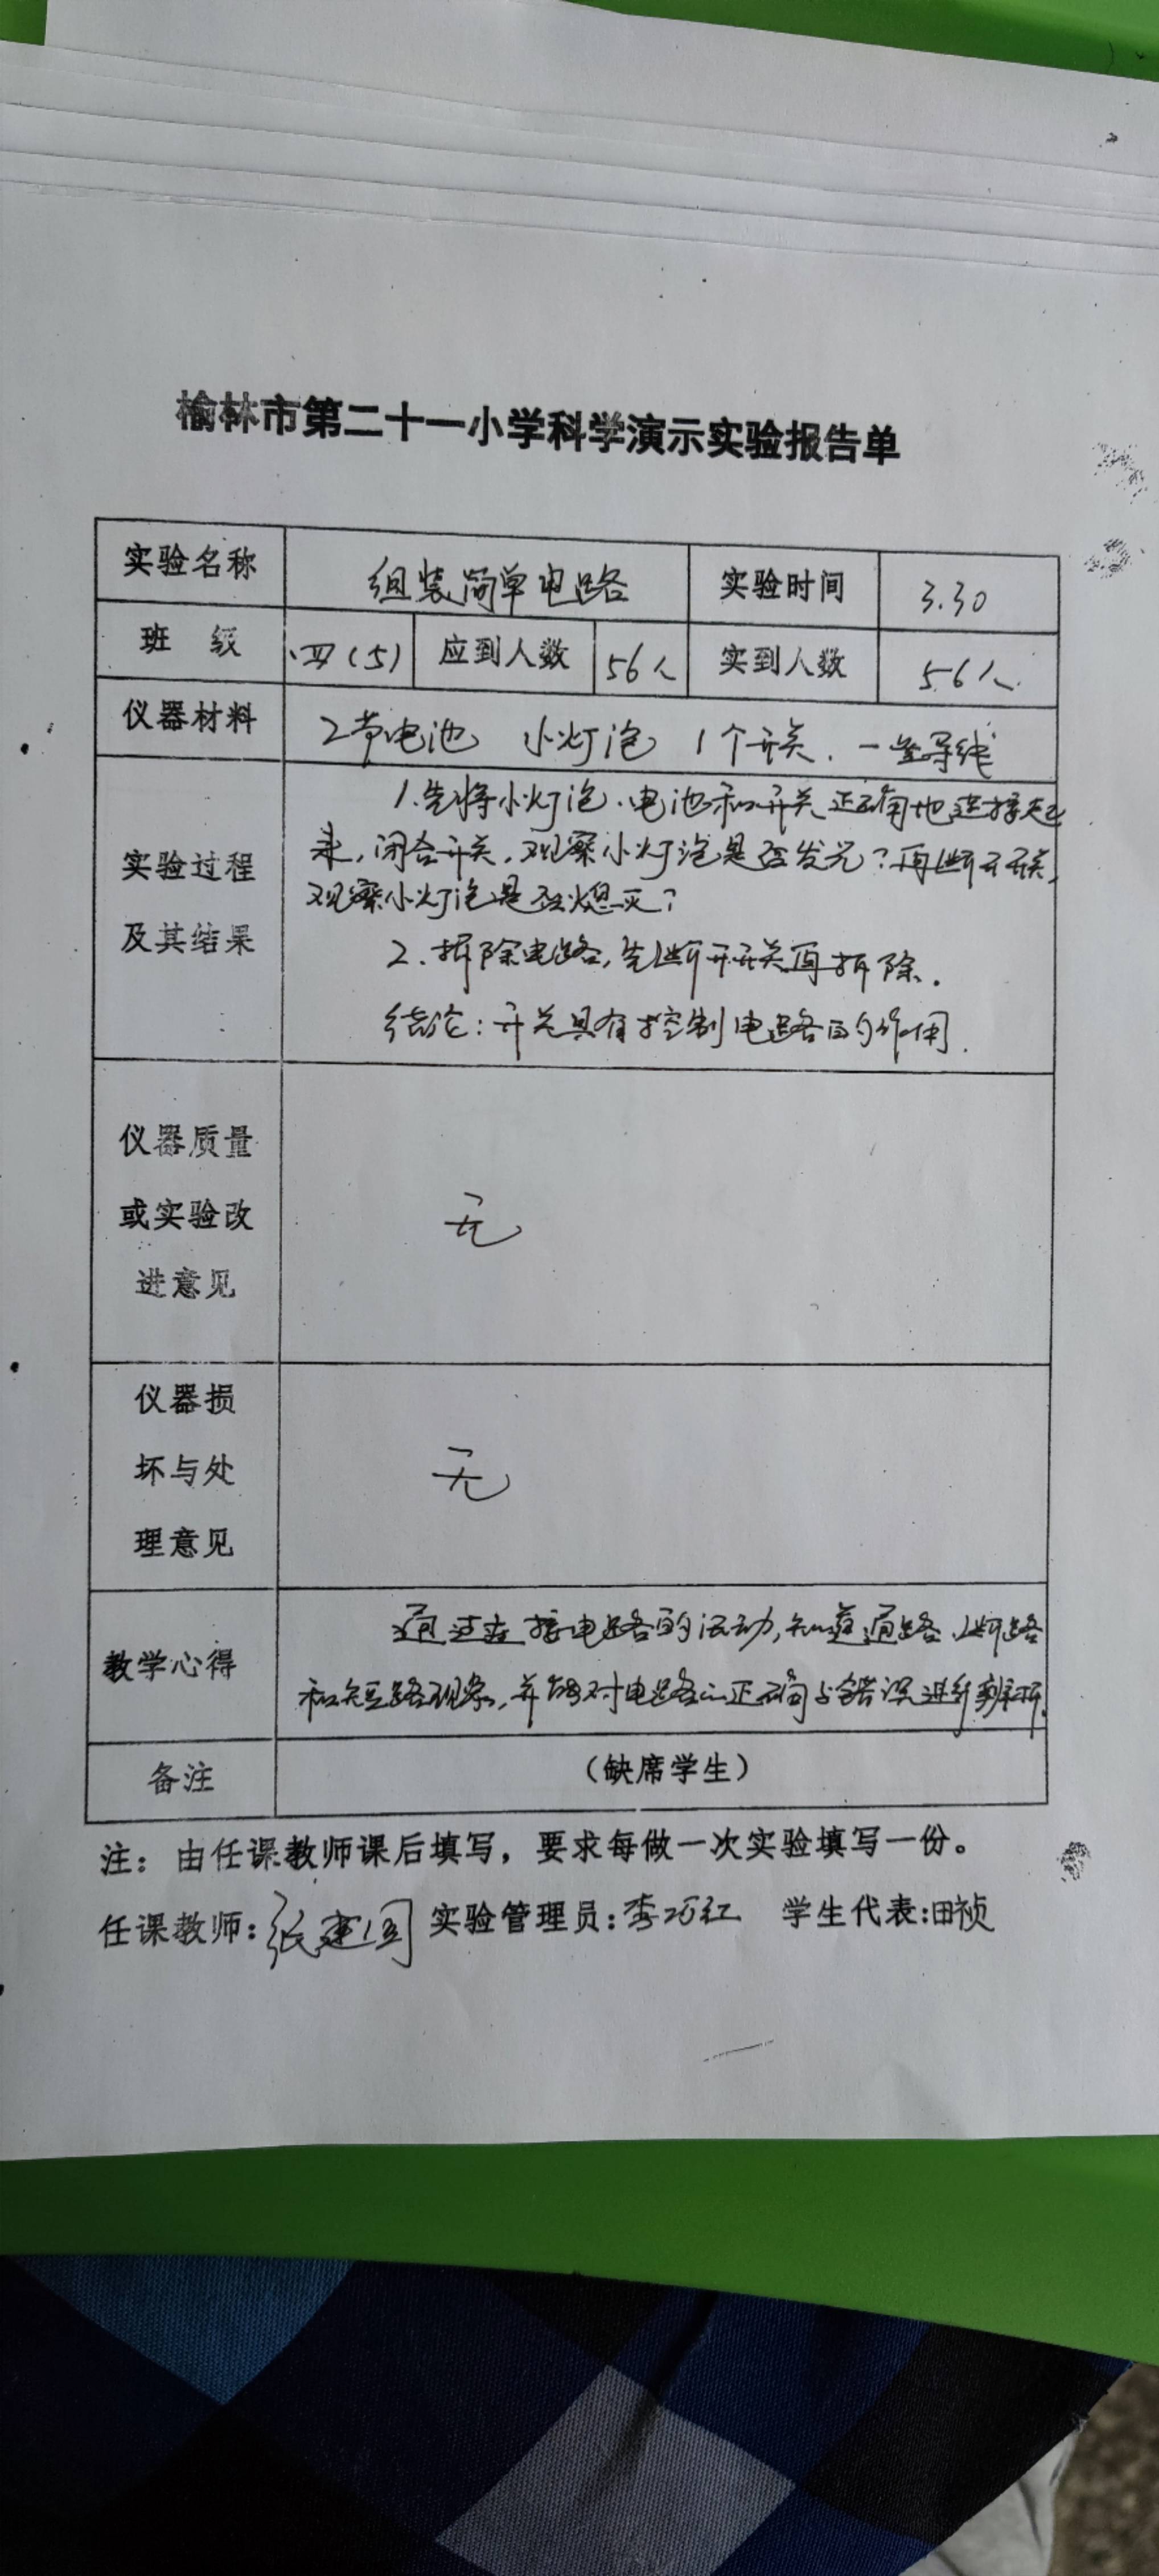 榆林市第二十一小学科学演示实验报告单
实验名称 组装简单电路 实验时间 3.30
班 级 四(5) 应到人数 56人 实到人数 56人
仪器材料 2节电池 小灯泡 1个开关. 一些导线
实验过程
及其结果
1.先将小灯泡、电池和开关正确地连接起
来,闭合开关,观察小灯泡是否发光?再断开开关,
观察小灯泡是否熄灭?
2.拆除电路,先断开开关再拆除.
结论:开关具有控制电路的作用.
仪器质量
或实验改
进意见
无
仪器损
坏与处
理意见
无
教学心得
通过连接电路的活动,知道通路、断路
和短路现象,并能对电路的正确与错误进行辨析.
备注 (缺席学生)
注:由任课教师课后填写,要求每做一次实验填写一份。
任课教师:张建国 实验管理员:李巧红 学生代表:田祯